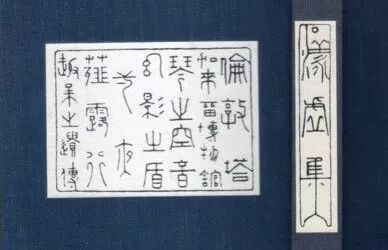 漾虚集
倫敦塔
加来留博物館
琴之空音
幻影之盾
一夜
薤露行
趣味之遺傳